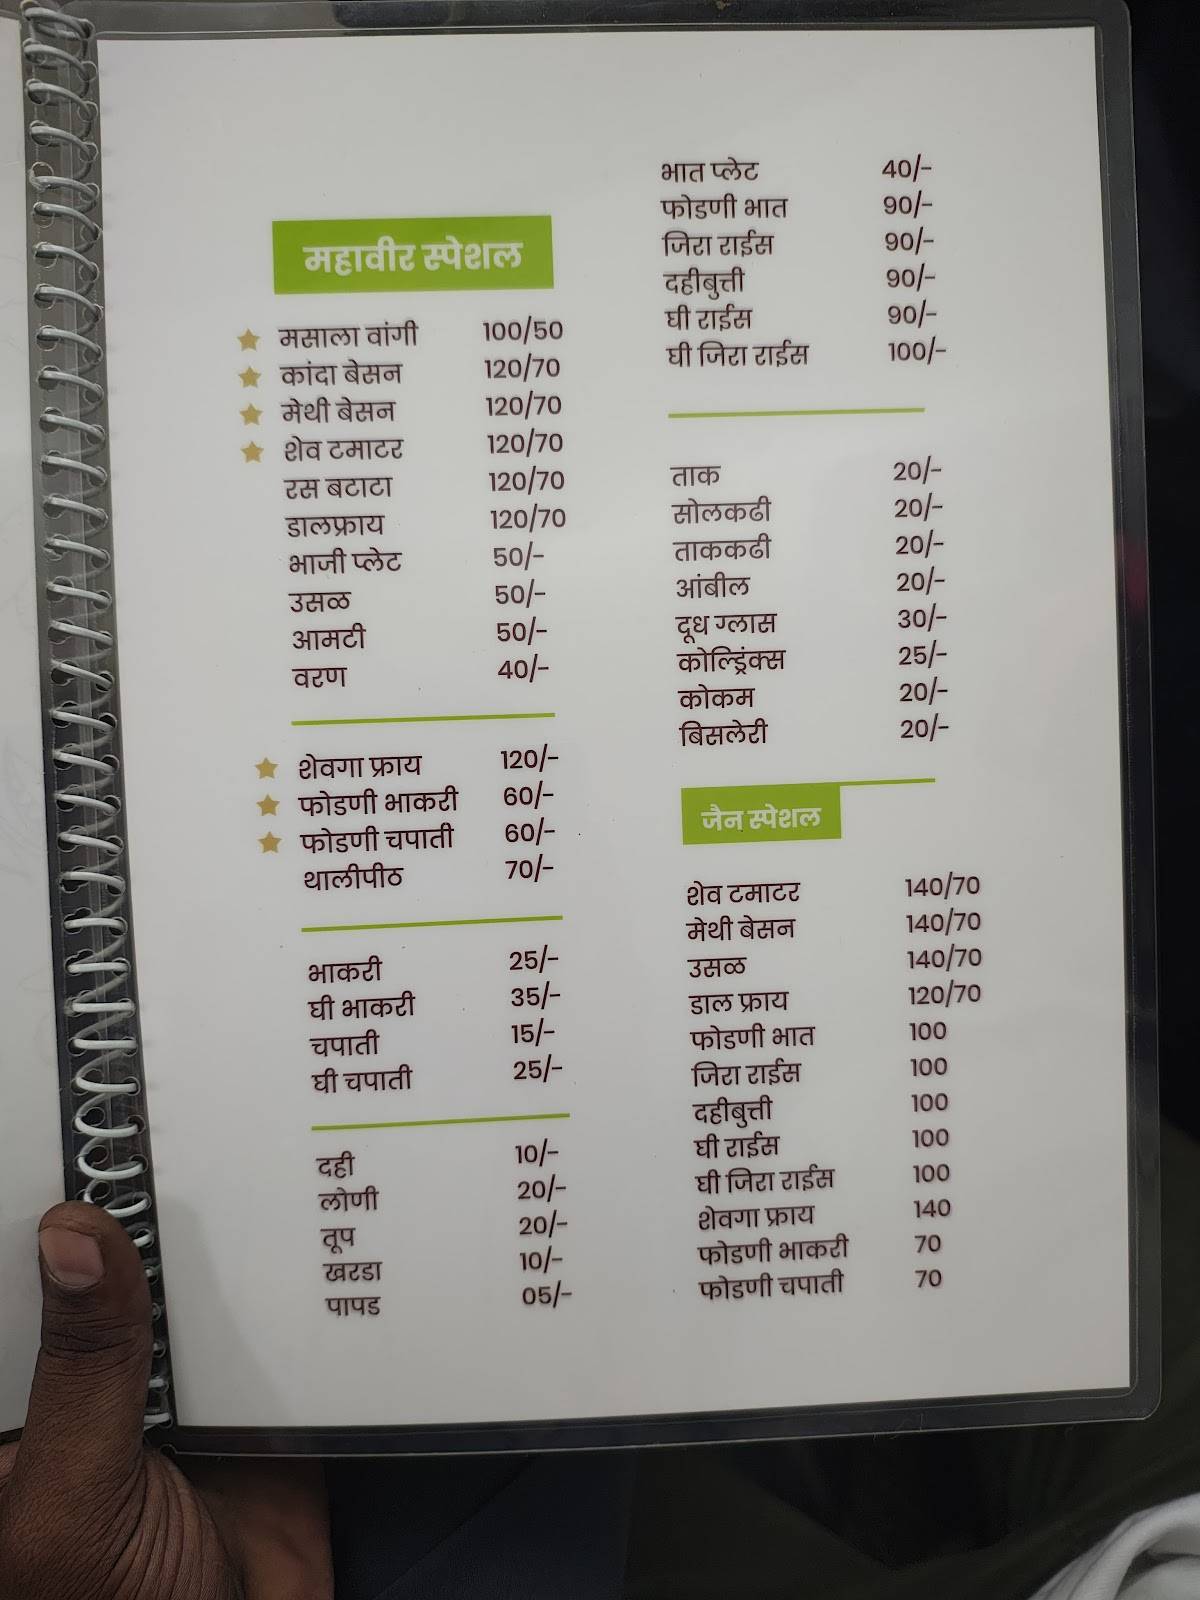 महावीर स्पेशल
मसाला वांगी 100/50
कांदा बेसन 120/70
मेथी बेसन 120/70
शेव टमाटर 120/70
रस बटाटा 120/70
डालफ्राय 120/70
भाजी प्लेट 50/-
उसळ 50/-
आमटी 50/-
वरण 40/-
शेवगा फ्राय 120/-
फोडणी भाकरी 60/-
फोडणी चपाती 60/-
थालीपीठ 70/-
भाकरी 25/-
घी भाकरी 35/-
चपाती 15/-
घी चपाती 25/-
दही 10/-
लोणी 20/-
तूप 20/-
खरडा 10/-
पापड 05/-
भात प्लेट 40/-
फोडणी भात 90/-
जिरा राईस 90/-
दहीबुत्ती 90/-
घी राईस 90/-
घी जिरा राईस 100/-
ताक 20/-
सोलकढी 20/-
ताककढी 20/-
आंबील 20/-
दूध ग्लास 30/-
कोल्ड्रिंक्स 25/-
कोकम 20/-
बिसलेरी 20/-
जैन स्पेशल
शेव टमाटर 140/70
मेथी बेसन 140/70
उसळ 140/70
डाल फ्राय 120/70
फोडणी भात 100
जिरा राईस 100
दहीबुत्ती 100
घी राईस 100
घी जिरा राईस 100
शेवगा फ्राय 140
फोडणी भाकरी 70
फोडणी चपाती 70